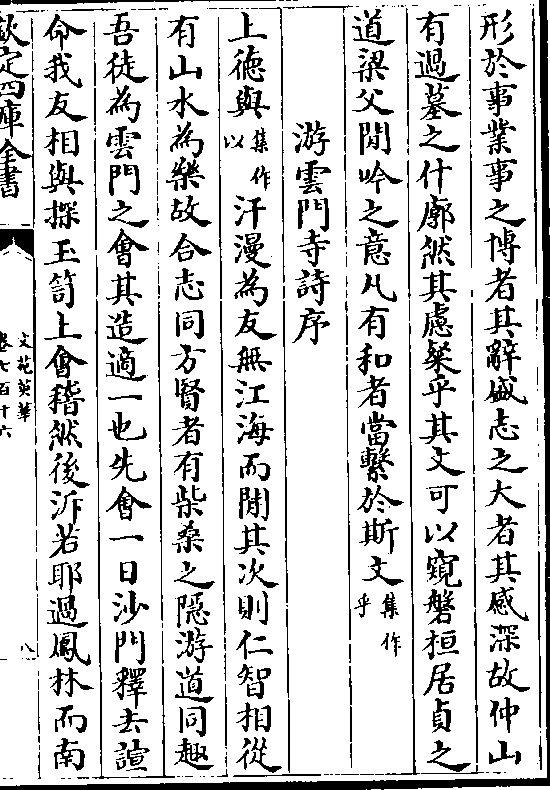 形於事業事之博者其辭盛志之大者其感深故仲山
有過墓之什廓然其慮粲乎其文可以窺磐桓居貞之
道梁父閒吟之意凡有和者當繫於斯文集作乎
游雲門寺詩序
上德與集作以汗漫為友無江海而閒其次則仁智相從
有山水為樂故合志同方賢者有柴桑之隱游道同趣
吾徒為雲門之會其造適一也先會一日沙門釋去諠
命我友相與探玉笥上會稽然後泝若耶過鳳林而南
欽定四庫全書
文苑英華
卷七百十六
八